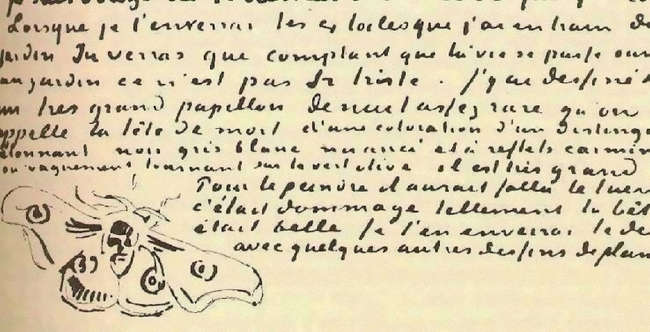 Lorsque je t'enverrai les 4 toiles que j'ai en train de
jardin Tu verras que comptant que la vie se passe
au jardin ce n'est pas si triste. J'y ai dessiné
un tres grand papillon de nuit assez rare qu'on
appelle la tête de mort d'une coloration d'un distingu
etonnant noir gris blanc nuancé et à reflets carmin
ou vaguement tournant sur le vert olive il est très grand
Pour le peindre il aurait fallu le tuer
c'était dommage tellement la bêt
était belle Je t'en enverrai le de
avec quelques autres dessins de plan